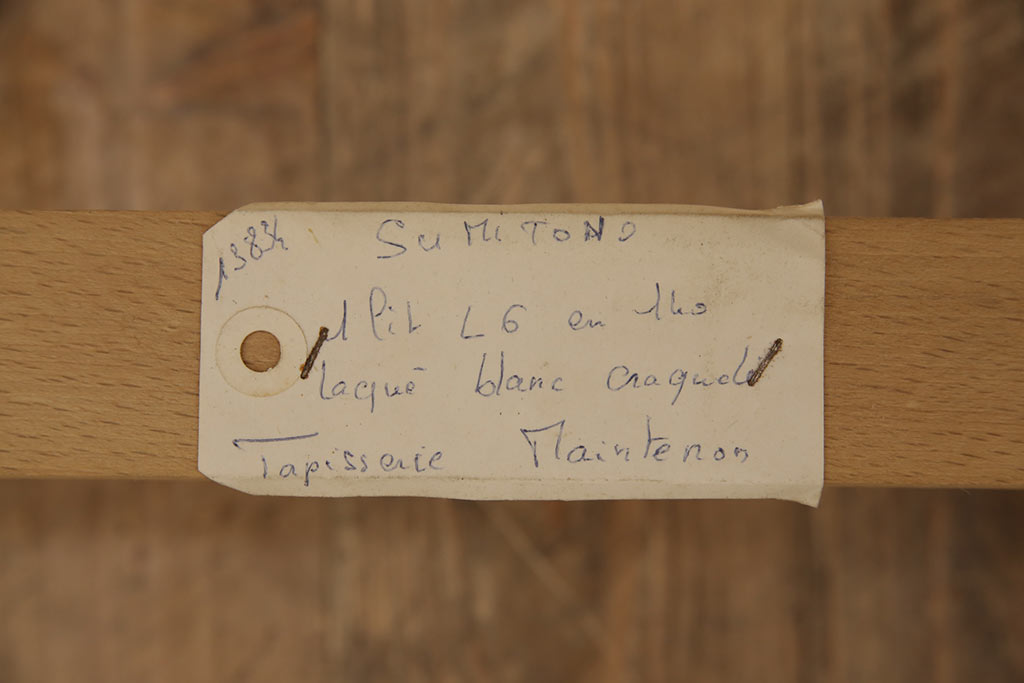 SUMITONO
1 lit L6 en 140
laqué blanc craquelé
Tapisserie Maintenon